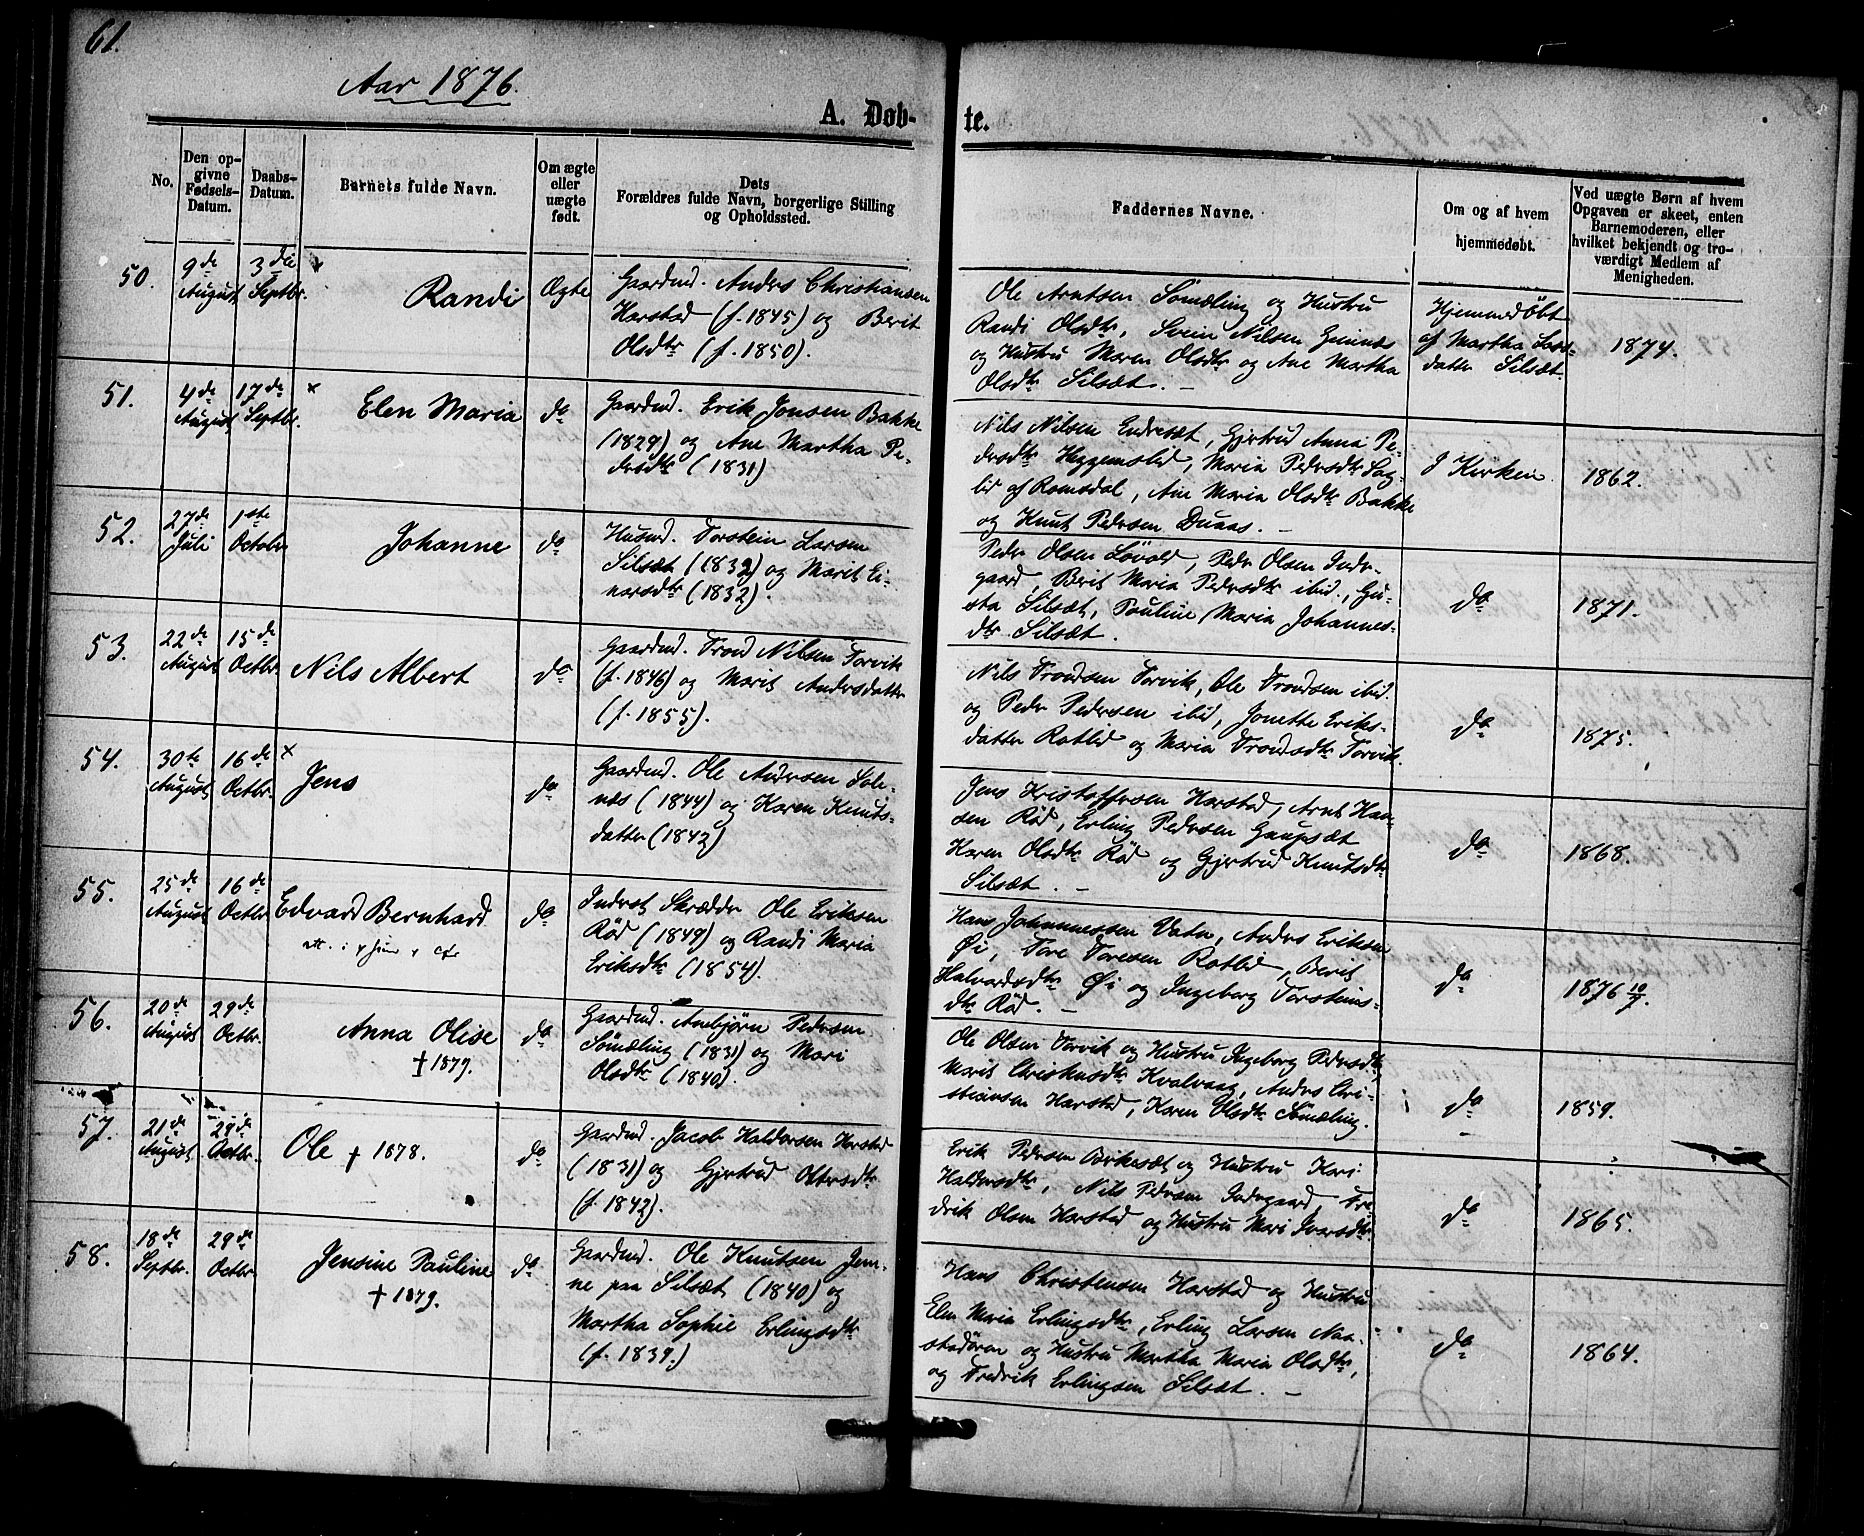 61.
Aar 1876.
A. Døb-
te.
No.
Den op-
givne
Fødsels-
Datum.
Daabs-
Datum.
Barnets fulde Navn.
Om ægte
eller
uægte
født.
Dets
Forældres fulde Navn, borgerlige Stilling
og Opholdssted.
Faddernes Navne.
Om og af hvem
hjemmedøbt.
Ved uægte Børn af hvem
Opgaven er skeet, enten
Barnemoderen, eller
hvilket bekjendt og tro-
værdigt Medlem af
Menigheden.
50.
9de
August
3die
Septbr.
Randi
Ægte
Gaardmd. Anders Christiansen
Harstad (f. 1845) og Berit
Olsdtr (f. 1850).
Ole Arntsen Sømæling og Hustru
Randi Olsdtr, Svein Nilsen
og Hustru Maren Olsdtr og Ane Martha
Olsdtr Silsæt. —
Hjemmedøbt
af Martha Lars-
datter Silsæt.
1874.
51.
4de
August
17de
Septbr.
×
Elen Maria
do
Gaardmd. Erik Jonsen Bakke
(1829) og Ane Martha Pe-
dersdtr (1831)
Nils Nilsen Endresæt, Gjertrud Anna Pe-
dersdtr Heggemslid, Maria Pedersdtr
af Romsdal, Ane Maria Olsdtr Bakke
og Knut Pedersen Duaas. —
I Kirken.
1862.
52.
27de
Juli
1ste
Octobr
Johanne
do
Husmd. Torstein Larsen
Silsæt (1832) og Marit Ei-
narsdtr (1832).
Peder Olsen Løvold, Peder Olsen Inder-
gaard, Berit Maria Pedersdtr ibid., Gu-
sta Silsæt, Pauline Maria Johannes-
dtr Silsæt.
do
1871.
53.
22de
August
15de
Octbr.
Nils Albert
do
Gaardmd. Trond Nilsen Torvik
(f. 1846) og Marit Andersdatter
(f. 1855).
Nils Trondsen Torvik, Ole Trondsen ibid.
og Peder Pedersen ibid, Jonette Eriks-
datter Rotlid og Maria Trondsdtr Torvik.
do
1875.
54.
30te
August
16de
Octbr.
×
Jens
do
Gaardmd. Ole Andersen Sole-
næs (1844) og Karen Knuts-
datter (1842)
Jens Kristoffersen Harstad, Arnt Han-
sen Rød, Erling Pedersen Gaupsæt
Karen Olsdtr Rød og Gjertrud Knutsdtr
Silsæt. —
do
1868.
55.
25de
August
16de
Octbr.
Edvard Bernhard
do
Inderst Skrædder Ole Eriksen
Rød (1849) og Randi Maria
Eriksdtr (1854).
Hans Johannessen Vatn, Anders Eriksen
Øi, Tore Toresen Rotlid, Berit
Halvordsdtr Øi og Ingeborg Torsteins-
dtr Rød. —
do
1876 10/7.
56.
20de
August
29de
Octbr.
Anna Olise
† 1879.
do
Gaardmd. Arnbjørn Pedersen
Sømæling (1831) og Mari
Olsdtr (1840).
Ole Olsen Torvik og Hustru Ingeborg Pedersdtr,
Marit Christensdtr Kvalvaag, Anders Chri-
stiansen Harstad, Karen Olsdtr Sømæling.
do
1859.
57.
21de
August
29de
Octbr.
Ole † 1878.
do
Gaardmd. Jacob Haldorsen Harstad
(1831) og Gjertrud Ottersdtr
(f. 1842).
Erik Pedersen Birkesæt og Hustru Kari
Haldorsdtr, Nils Pedersen Indergaard, Fre-
drik Olsen Harstad og Hustru Mari Ivarsdtr.
do
1865.
58.
18de
Septbr.
29de
Octbr.
Jensine Pauline
† 1879.
do
Gaardmd. Ole Knutsen Jem-
ne paa Silsæt (1840) og
Martha Sophie Erlingsdtr
(f. 1839.)
Hans Christensen Harstad og Hustru
Elen Maria Erlingsdtr, Erling Larsen Naa-
stadøren og Hustru Martha Maria Olsdtr,
og Fredrik Erlingsen Silsæt. —
do
1864.